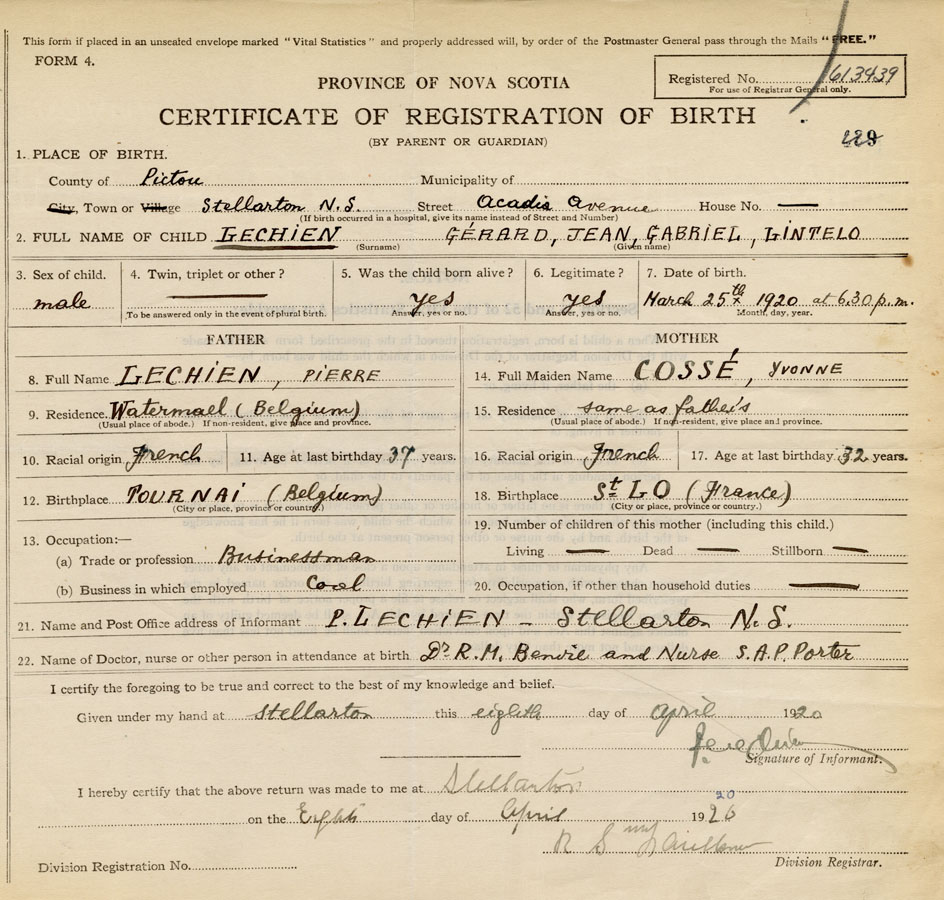 This form if placed in an unsealed envelope marked "Vital Statistics" and properly addressed will, by order of the Postmaster General pass through the Mails "FREE."
FORM 4.
PROVINCE OF NOVA SCOTIA
Registered No. 613439
For use of Registrar General only.
CERTIFICATE OF REGISTRATION OF BIRTH
(BY PARENT OR GUARDIAN)
1. PLACE OF BIRTH.
County of Pictou Municipality of
City, Town or Village Stellarton N.S. Street Acadia Avenue House No. —
(If birth occurred in a hospital, give its name instead of Street and Number)
2. FULL NAME OF CHILD LECHIEN GÉRARD, JEAN, GABRIEL, LINTELO
(Surname) (Given name)
3. Sex of child. 4. Twin, triplet or other? 5. Was the child born alive? 6. Legitimate? 7. Date of birth.
male — yes yes March 25th 1920 at 6.30 p.m.
To be answered only in the event of plural birth. Answer, yes or no. Answer, yes or no. Month, day, year.
FATHER MOTHER
8. Full Name LECHIEN, PIERRE 14. Full Maiden Name COSSÉ, YVONNE
9. Residence. Watermael (Belgium) 15. Residence same as father's
(Usual place of abode.) If non-resident, give place and province. (Usual place of abode.) If non-resident, give place and province.
10. Racial origin French 11. Age at last birthday 37 years. 16. Racial origin French 17. Age at last birthday 32 years.
12. Birthplace TOURNAI (Belgium) 18. Birthplace St LO (France)
(City or place, province or country.) (City or place, province or country.)
13. Occupation:— 19. Number of children of this mother (including this child.)
(a) Trade or profession Businessman Living — Dead — Stillborn —
(b) Business in which employed Coal 20. Occupation, if other than household duties —
21. Name and Post Office address of Informant P. LECHIEN – Stellarton N.S.
22. Name of Doctor, nurse or other person in attendance at birth Dr R.M. Benvie and Nurse S.A.P. Porter
I certify the foregoing to be true and correct to the best of my knowledge and belief.
Given under my hand at Stellarton this eighth day of April 1920
Signature of Informant.
I hereby certify that the above return was made to me at Stellarton
20
on the Eight day of April 1926
Division Registration No. Division Registrar.